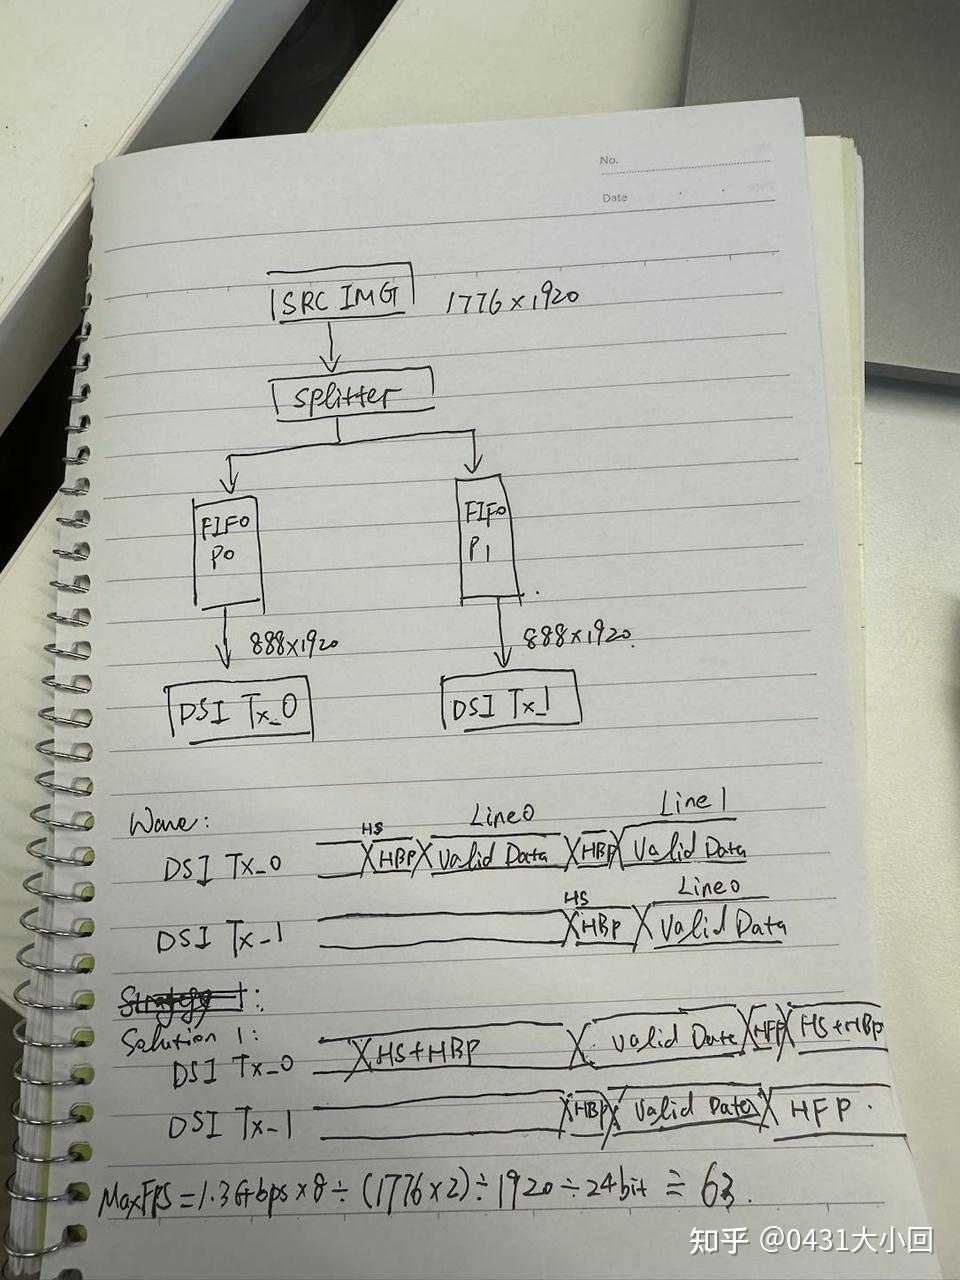 No.
Date
SRC IMG 1776×1920
Splitter
FIFO P0
FIFO P1
888×1920 888×1920.
DSI Tx_0 DSI Tx_1
Wave:
HS Line0 Line1
DSI Tx_0 HBP Valid Data HBP Valid Data
HS Line0
DSI Tx_1 HBP Valid Data
Strategy 1:
Solution 1:
DSI Tx_0 HS+HBP Valid Data HFP HS+HBP
DSI Tx_1 HBP Valid Data HFP.
MaxFPS=1.3Gbps×8÷(1776×2)÷1920÷24bit≒63.
知乎 @0431大小回